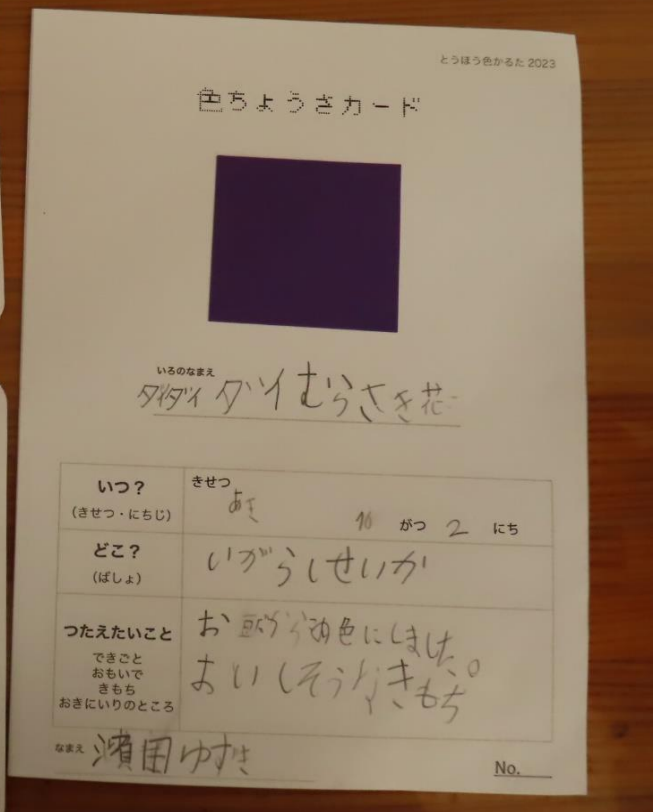 とうほう色かるた 2023
色ちょうさカード
いろのなまえ
ダイダイ ダツイむらさき花
いつ？
(きせつ・にちじ)
きせつ
あき
10 がつ 2 にち
どこ？
(ばしょ)
いがらしせいか
つたえたいこと
できごと
おもいで
きもち
おきにいりのところ
お から 色にしました。
おいしそうなきもち
なまえ 濱田ゆずき
No.